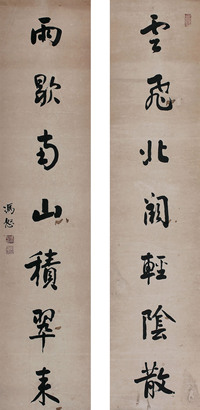 雲飛北闕輕陰散
雨歇南山積翠來
馮恕